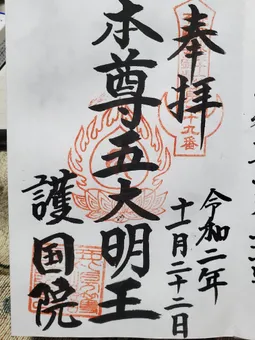 奉拝
令和二年
十一月二十二日
本尊五大明王
護国院
十九番